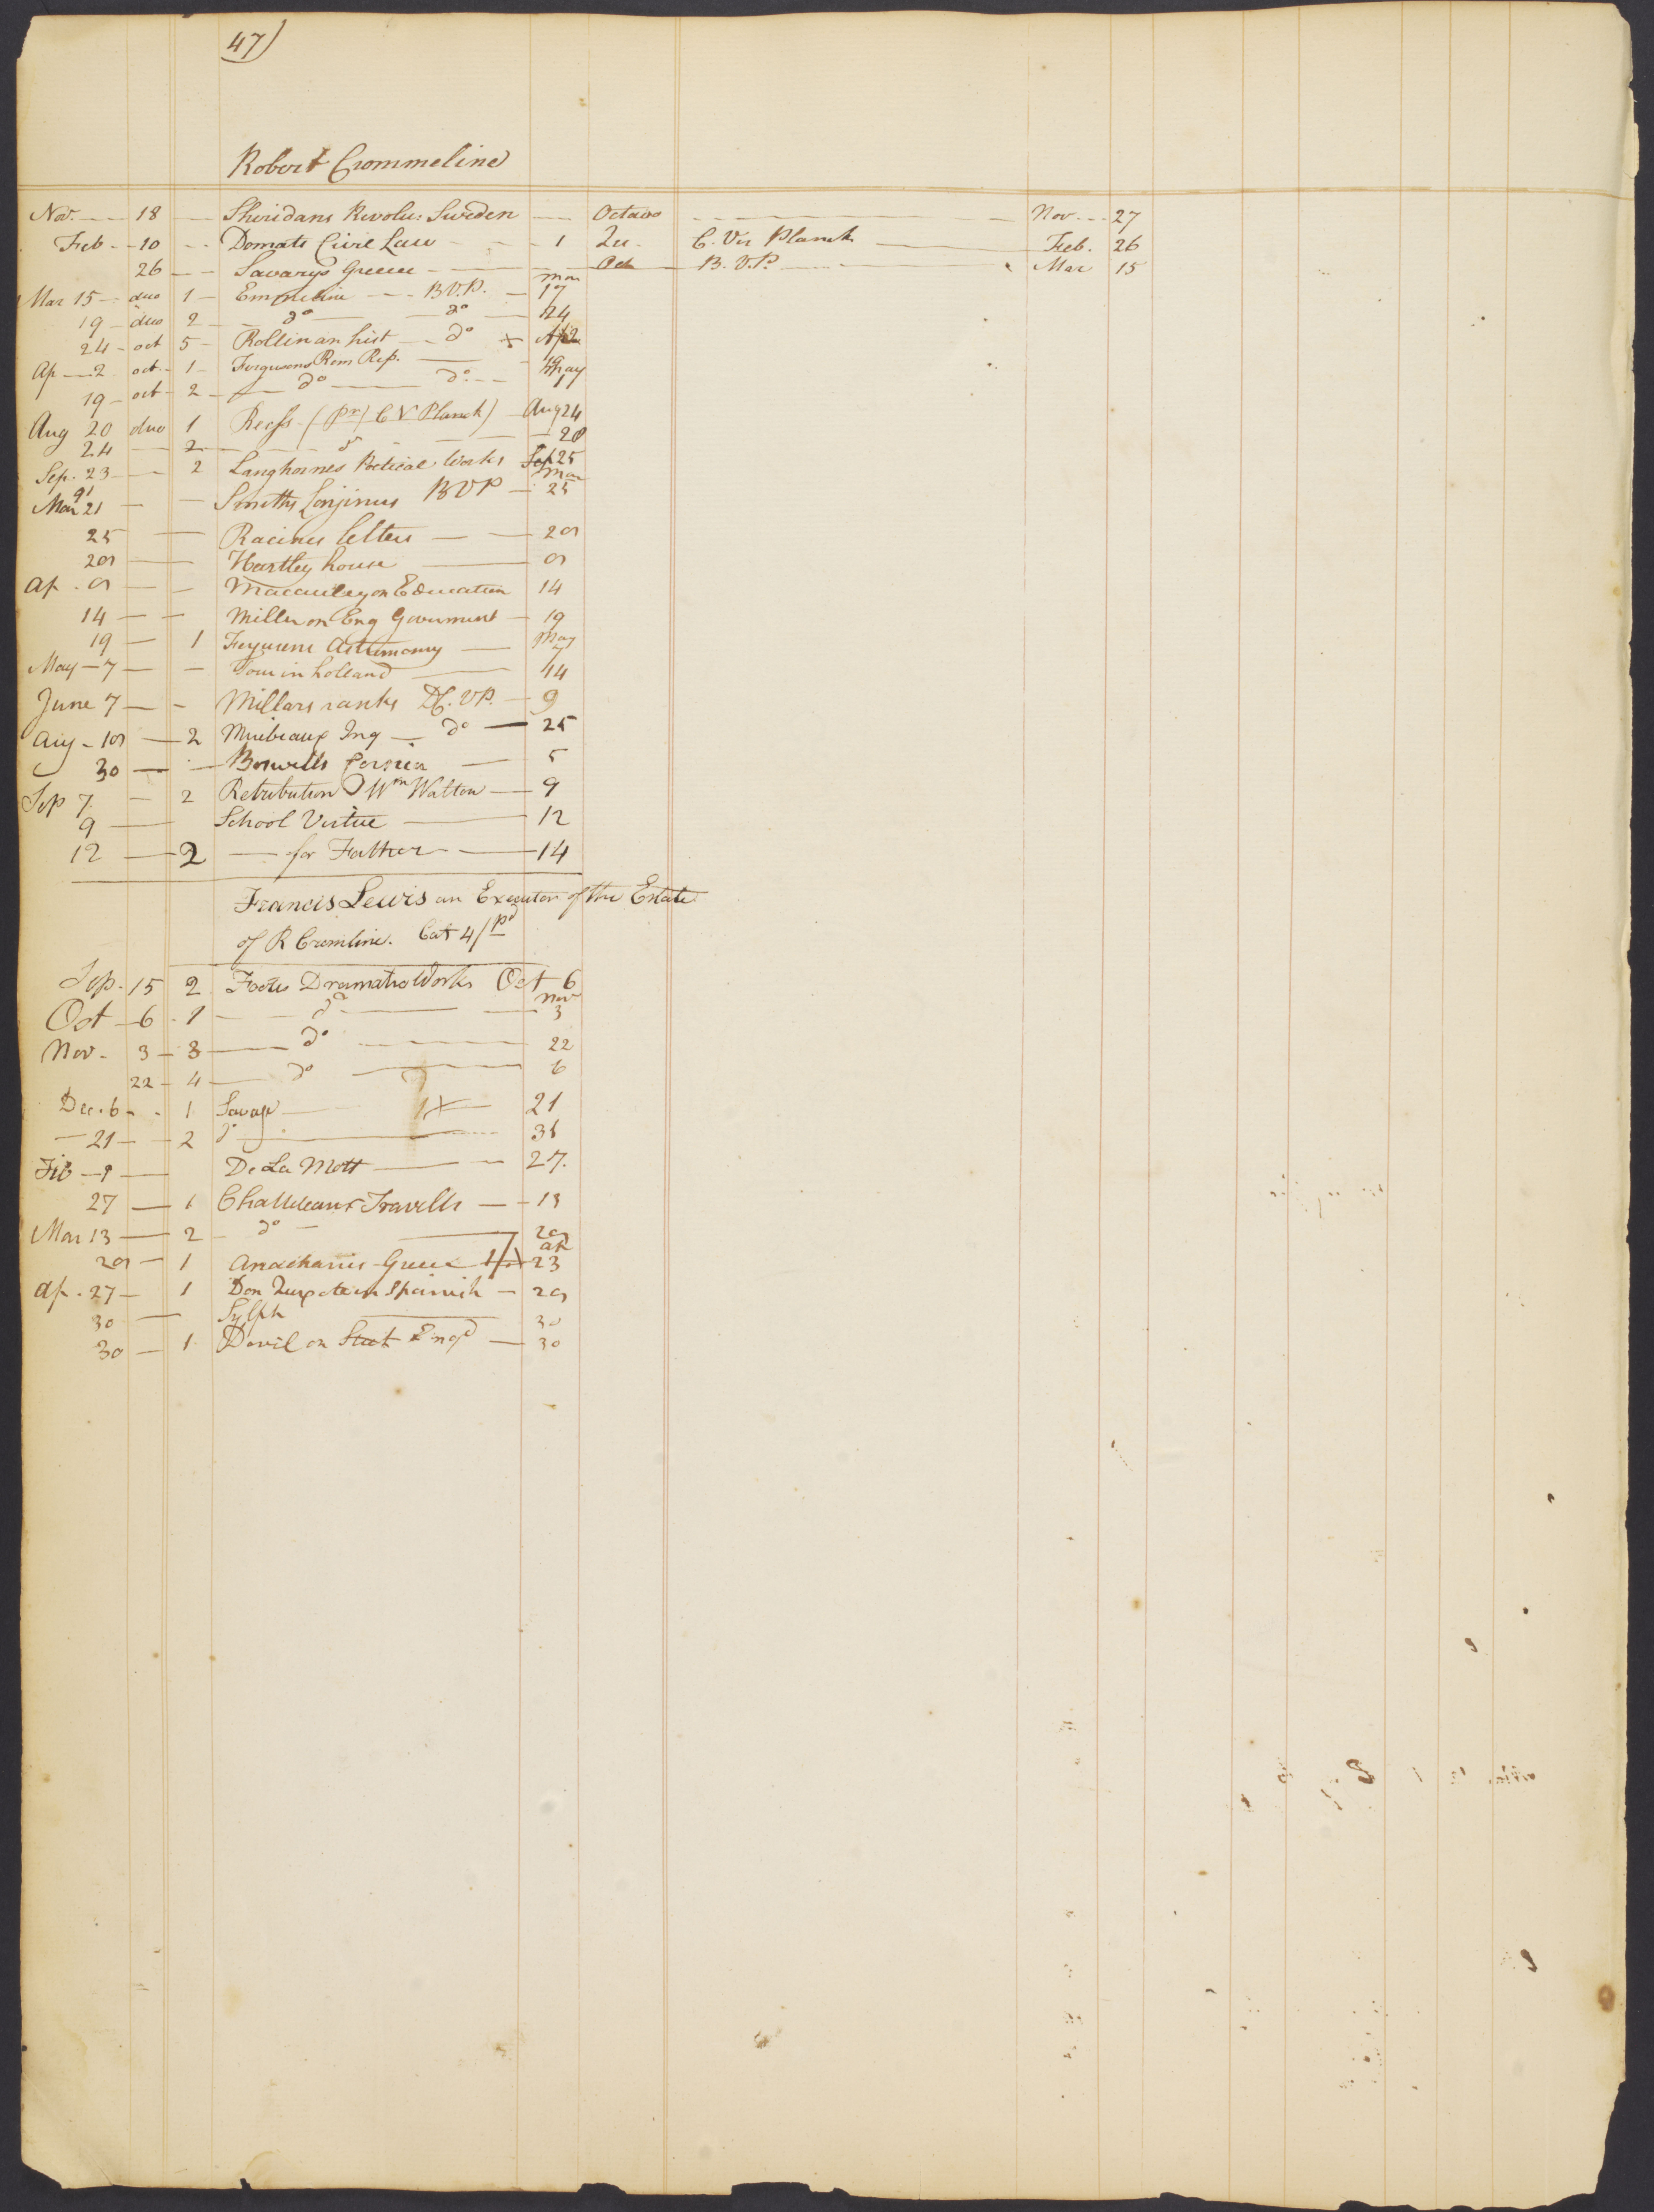 47)
Robert Crommeline
Nov. 18 Sheridans Revolu: Sweden Octavo Nov. 27
Feb 10 Domats Civil Law 1 Qu. C. Ver Planck Feb. 26
26 Savarys Greece Oct B. V. P. Mar 15
Mar 15 duo 1 Emmeline B V. P. Mar 17
19 duo 2 do do 24
24 oct 5 Rollin an hist do x Ap 2
Ap 2 oct 1 Fergusons Rom Rep. 19
19 oct 2 do do May 1
Aug 20 duo 1 Recess (pr) C V Planck) Aug 24
24 2 do 28
Sep. 23 2 Langhornes Poetical Works Sep 25
91
Mar 21 Smiths Longinus B V P Mar 25
25 Racines letters 29
29 Hartley house 9
Ap. 9 Macauley on Education 14
14 Millar on Eng Government 19
19 1 Fergusons Astronomy May 7
May 7 Tour in holland 14
June 7 Millars ranks D C. V P. 9
Aug 19 2 Miribeaux Ing do 25
30 Boswells Corsica 5
Sep 7 2 Retribution Wm Walton 9
9 School Virtue 12
12 2 for Father 14
Francis Lewis an Executor of the Estate
of R Cromline. Cat 4/ pd
Sep. 15 2 Footes Dramatic Works Oct 6
Oct 6 1 do Nov 3
Nov. 3 3 do 22
22 4 do 6
Dec. 6 1 Savage 1/x 21
21 2 do 31
Feb 9 De La Mott 27.
27 1 Chatteleaux Travells 13
Mar 13 2 do 29
29 1 Anacharsis Greece 1/x ap 23
Ap. 27 1 Don Quixote in Spanish 29
30 Sylph 30
30 1 Devil on Stick Engd 30